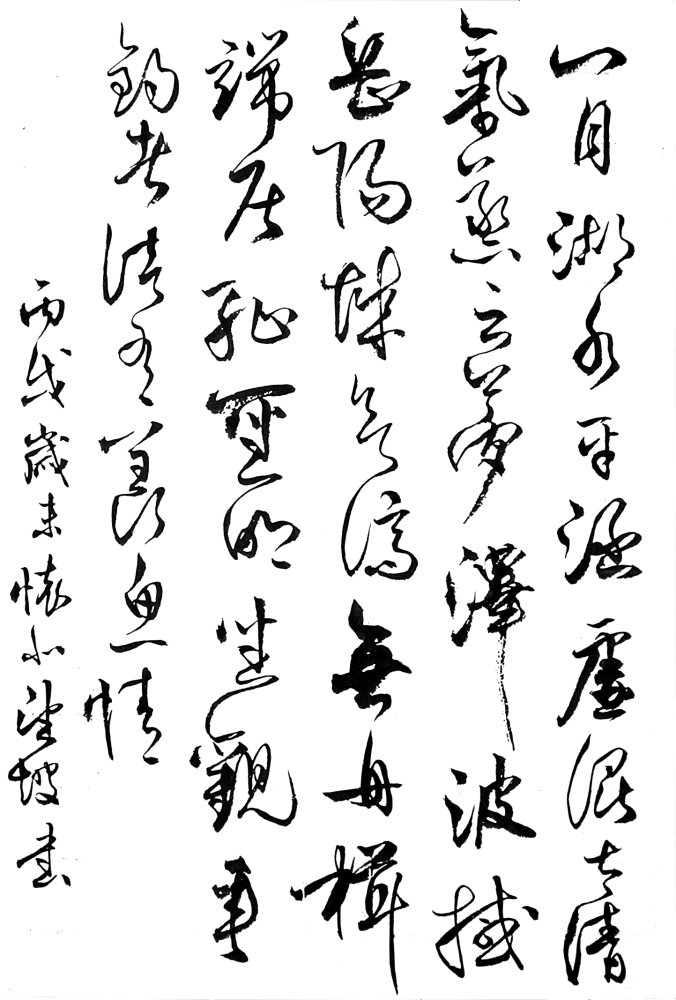 八月湖水平涵虛混太清
氣蒸云夢澤波撼
岳陽城欲濟無舟楫
端居恥聖明坐觀垂
釣者徒有羨魚情
丙戌歲末懷北望坡書